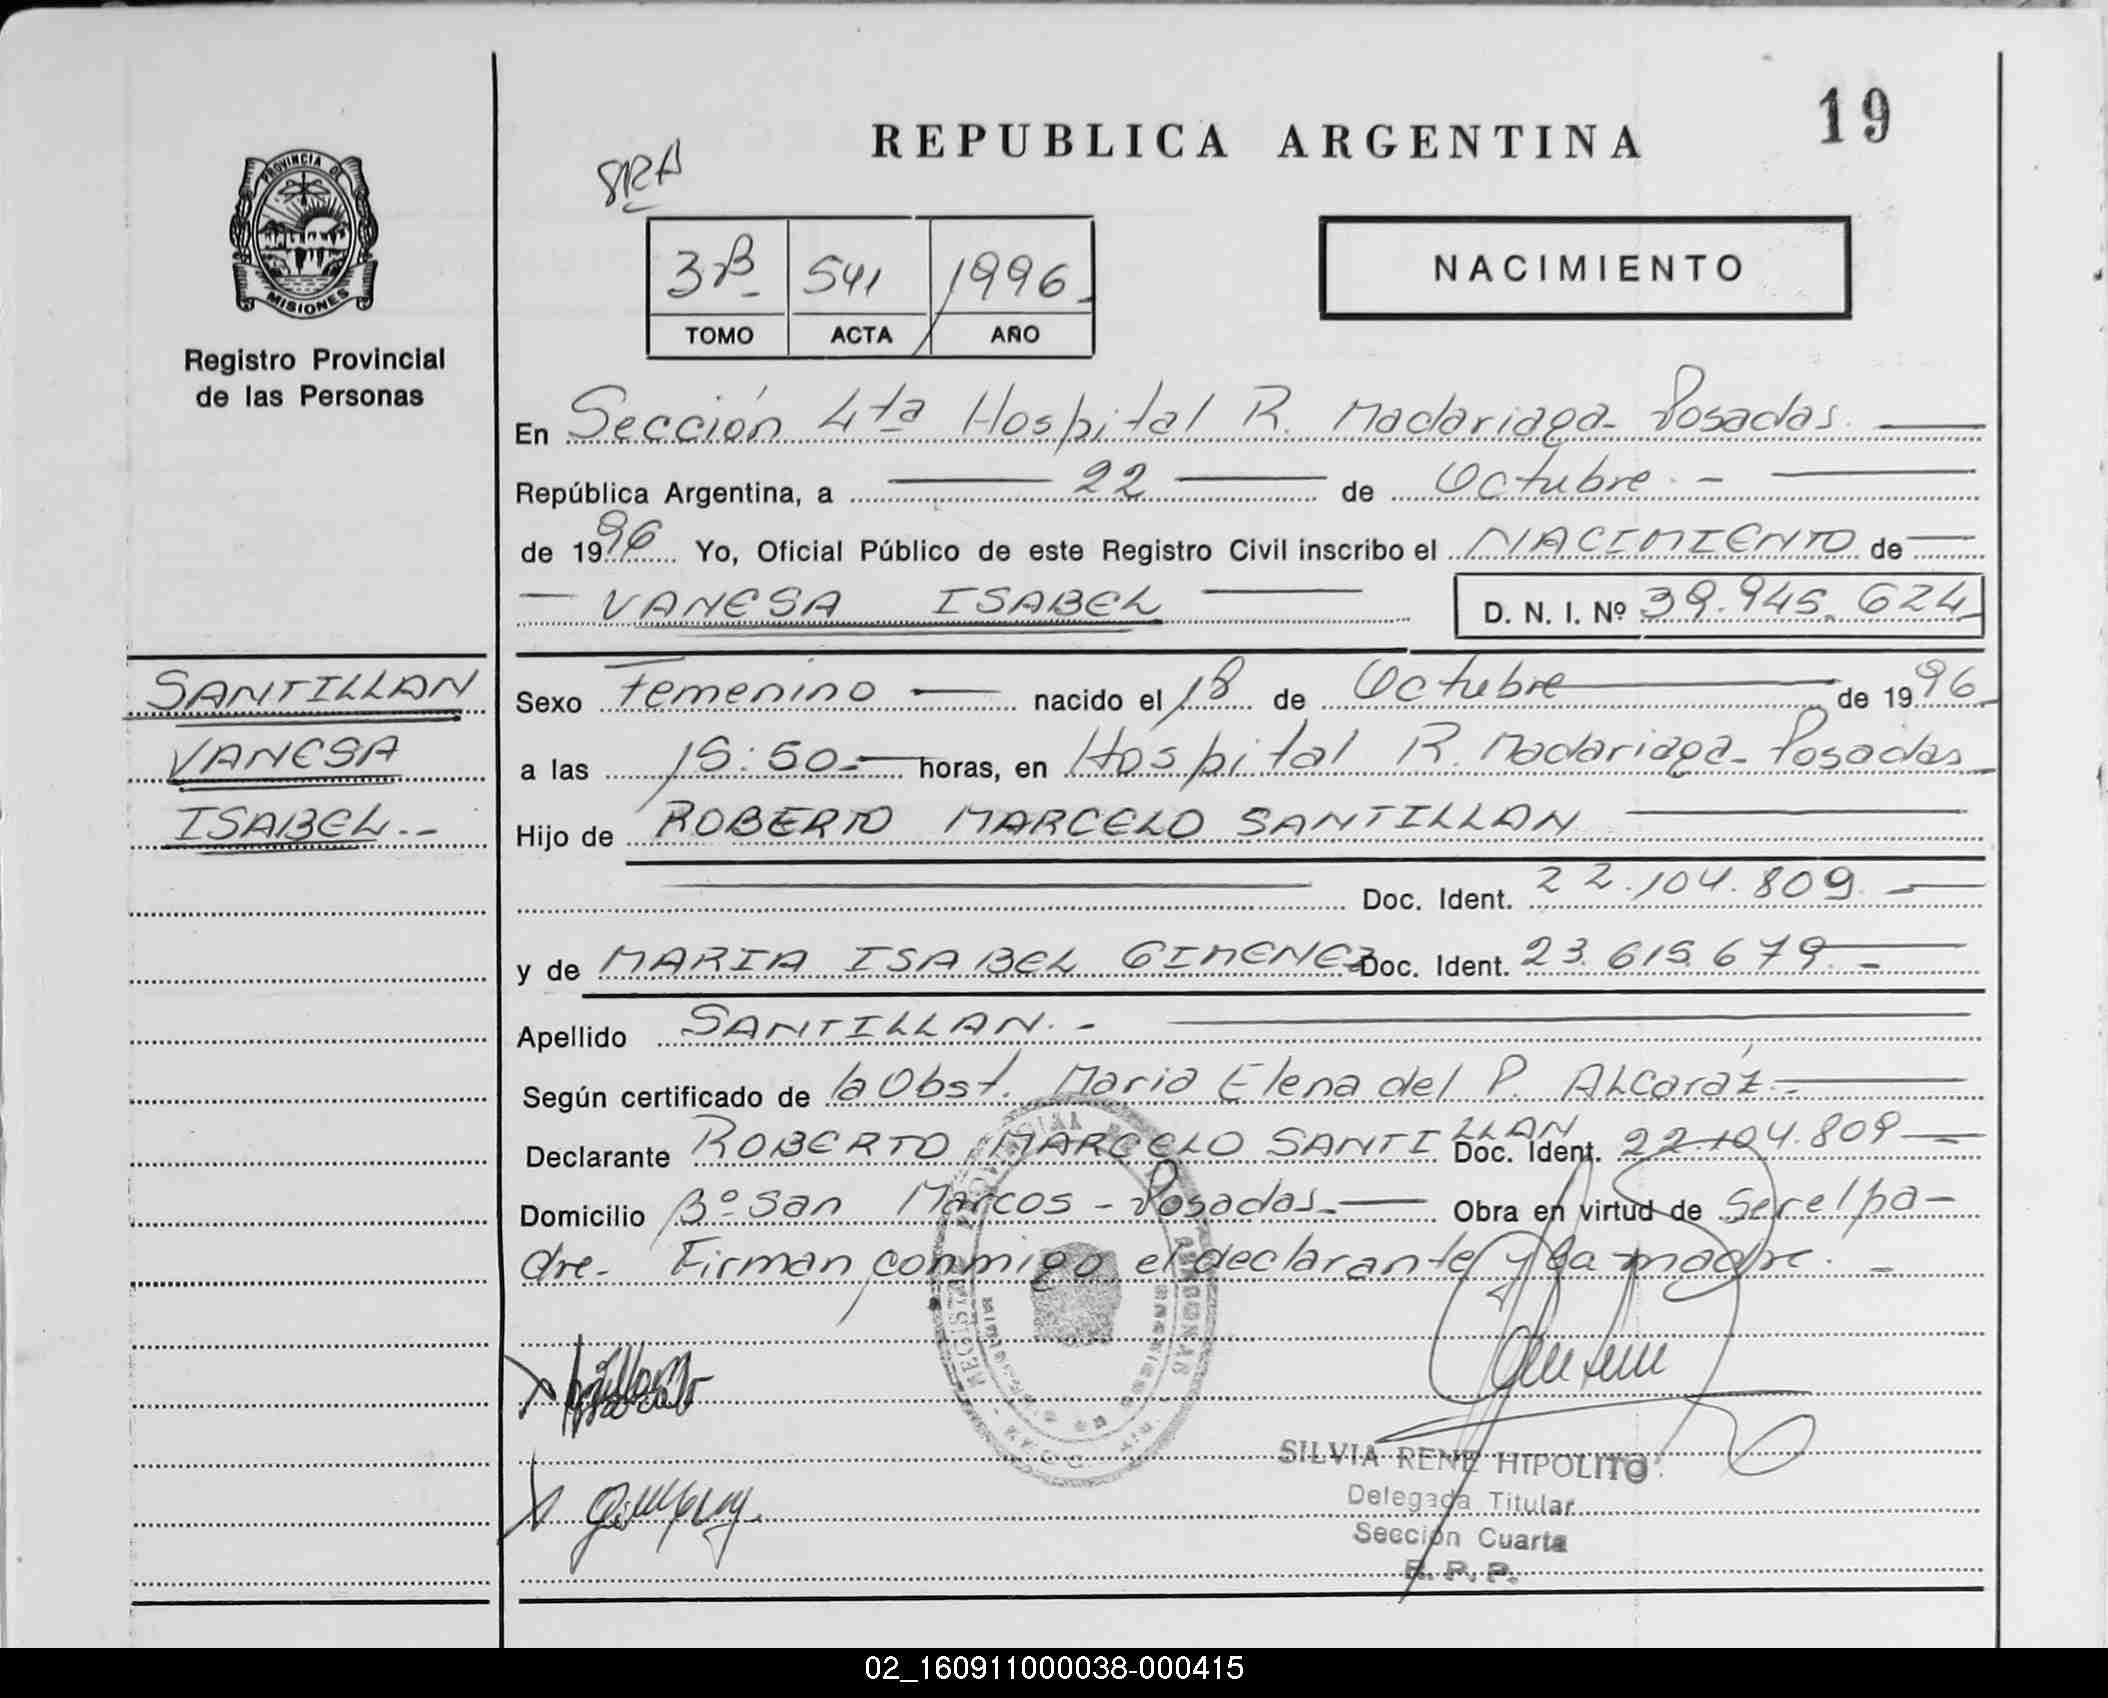 19
REPUBLICA ARGENTINA
PROVINCIA DE
MISIONES
Registro Provincial
de las Personas
3B 541 1996
TOMO ACTA AÑO
NACIMIENTO
En Sección 4ta Hospital R. Madariaga - Posadas.
República Argentina, a 22 de Octubre. -
de 1996 Yo, Oficial Público de este Registro Civil inscribo el NACIMIENTO de
VANESA ISABEL D. N. I. Nº 39.945.624
SANTILLAN
VANESA
ISABEL.-
Sexo Femenino nacido el 18 de Octubre de 1996
a las 15:50 horas, en Hospital R. Madariaga - Posadas
Hijo de ROBERTO MARCELO SANTILLAN
Doc. Ident. 22.104.809.
y de MARIA ISABEL GIMENEZ Doc. Ident. 23.615.679.-
Apellido SANTILLAN.-
Según certificado de la Obst. Maria Elena del P. ALcaráz.-
Declarante ROBERTO MARCELO SANTILLAN Doc. Ident. 22.104.809
Domicilio Bº San Marcos - Posadas.- Obra en virtud de Ser el pa-
dre. Firman conmigo el declarante y la madre. -
SILVIA RENE HIPOLITO
Delegada Titular
Sección Cuarta
R. P. P.
02_160911000038-000415